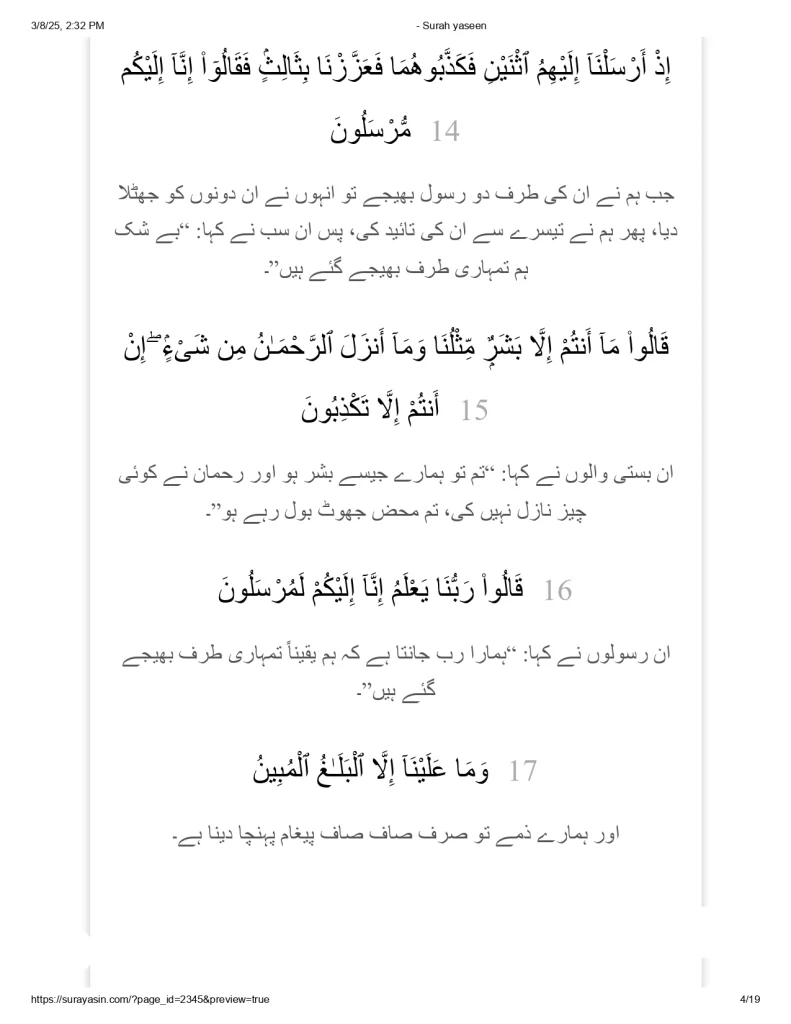 3/8/25, 2:32 PM - Surah yaseen
إِذْ أَرْسَلْنَآ إِلَيْهِمُ ٱثْنَيْنِ فَكَذَّبُوهُمَا فَعَزَّزْنَا بِثَالِثٍۢ فَقَالُوٓا۟ إِنَّآ إِلَيْكُم
مُّرْسَلُونَ 14
جب ہم نے ان کی طرف دو رسول بھیجے تو انہوں نے ان دونوں کو جھٹلا
دیا، پھر ہم نے تیسرے سے ان کی تائید کی، پس ان سب نے کہا: “بے شک
ہم تمہاری طرف بھیجے گئے ہیں”۔
قَالُوا۟ مَآ أَنتُمْ إِلَّا بَشَرٌۭ مِّثْلُنَا وَمَآ أَنزَلَ ٱلرَّحْمَـٰنُ مِن شَىْءٍۢ ۖ إِنْ
أَنتُمْ إِلَّا تَكْذِبُونَ 15
ان بستی والوں نے کہا: “تم تو ہمارے جیسے بشر ہو اور رحمان نے کوئی
چیز نازل نہیں کی، تم محض جھوٹ بول رہے ہو”۔
قَالُوا۟ رَبُّنَا يَعْلَمُ إِنَّآ إِلَيْكُمْ لَمُرْسَلُونَ 16
ان رسولوں نے کہا: “ہمارا رب جانتا ہے کہ ہم یقیناً تمہاری طرف بھیجے
گئے ہیں”۔
وَمَا عَلَيْنَآ إِلَّا ٱلْبَلَـٰغُ ٱلْمُبِينُ 17
اور ہمارے ذمے تو صرف صاف صاف پیغام پہنچا دینا ہے۔
https://surayasin.com/?page_id=2345&preview=true 4/19